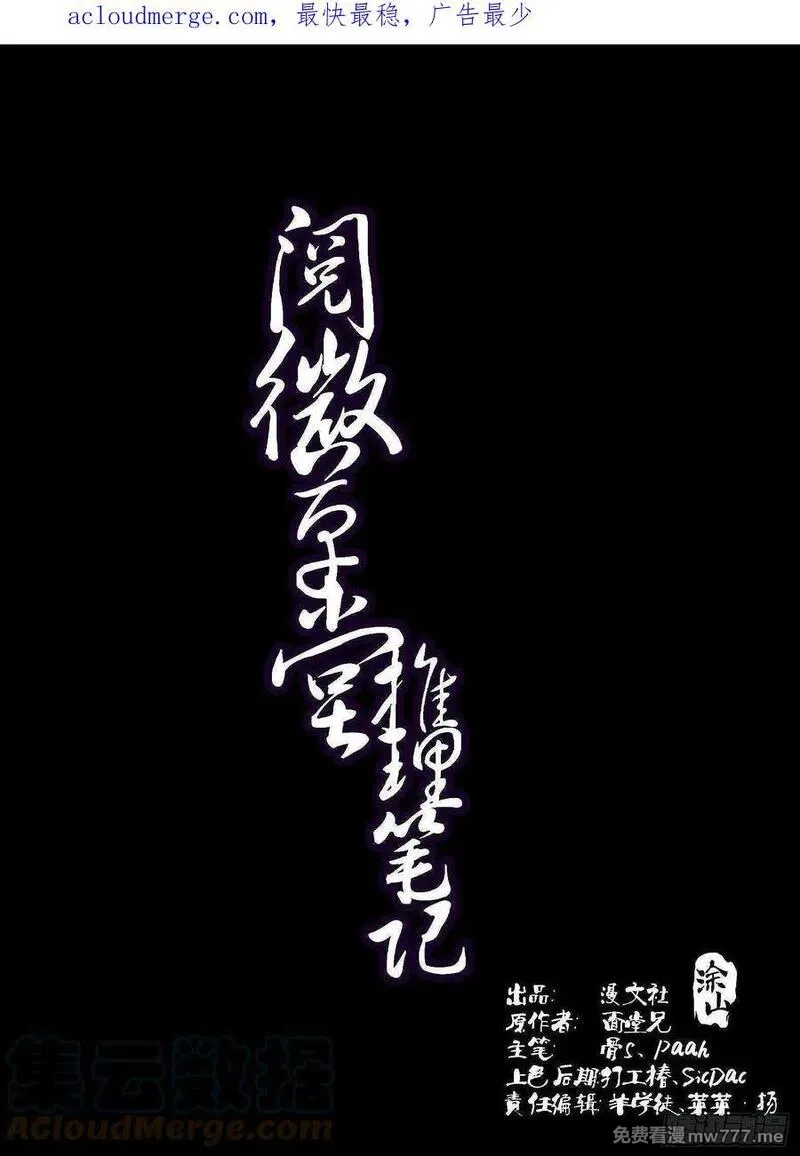 acloudmerge.com，最快最稳，广告最少
阅微草堂
推理笔记
涂山
出品：漫文社
原作者：面堂兄
主笔：骨S、paah
上色后期：打工椿、SicDac
責任编辑：羊学徒、菜菜·扬
集云数据
免费看漫mw777.me